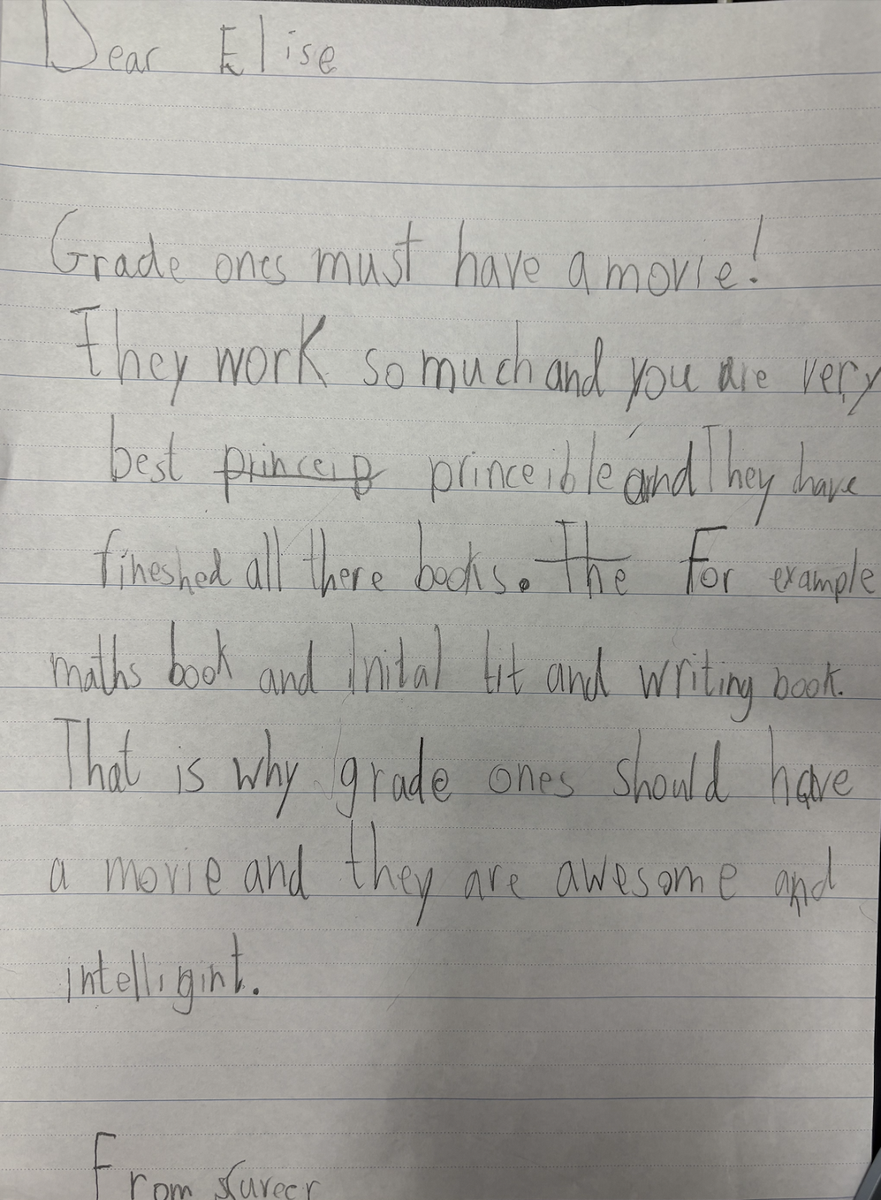 Dear Elise
Grade ones must have a movie!
They work so much and you are very
best princeip princeible and They have
fineshed all there books. The For example
maths book and Inital lit and writing book.
That is why grade ones should have
a movie and they are awesome and
intelligint.
From